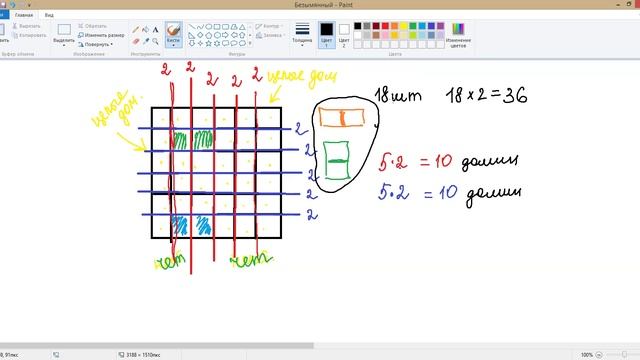 Безымянный - Paint
Файл Главная Вид
Вставить
Вырезать
Копировать
Выделить
Обрезать
Изменить размер
Повернуть
Кисти
Контур
Заливка
Толщина
Цвет 1
Цвет 2
Изменение цветов
Буфер обмена Изображение Инструменты Фигуры Цвета
2 2 2 2 2 целые дом
целые дом.
2
2
2
2
2
чет чет
18шт 18×2=36
5·2 = 10 домин
5·2 = 10 домин
3188 × 1510пкс 100%